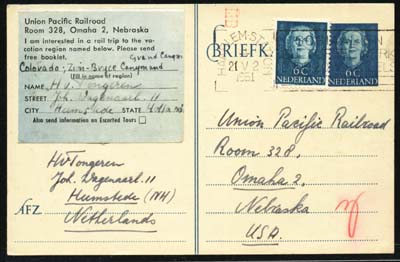 Union Pacific Railroad
Room 328, Omaha 2, Nebraska
I am interested in a rail trip to the va-
cation region named below. Please send
free booklet. Grand Canyon
Colorado; Zion-Bryce Canyon and
(Fill in name of region)
NAME H.V. Tongeren
STREET Joh. Dagenaarl. 11
CITY Heemstede STATE
Also send information on Escorted Tours
HVTongeren
Joh. Dagenaarl. 11
Heemstede (NH)
AFZ. Netherlands
BRIEFK
21 V 2
1951
6C
NEDERLAND
6C
NEDERLAND
Union Pacific Railroad
Room 328,
Omaha 2,
Nebraska
USA.